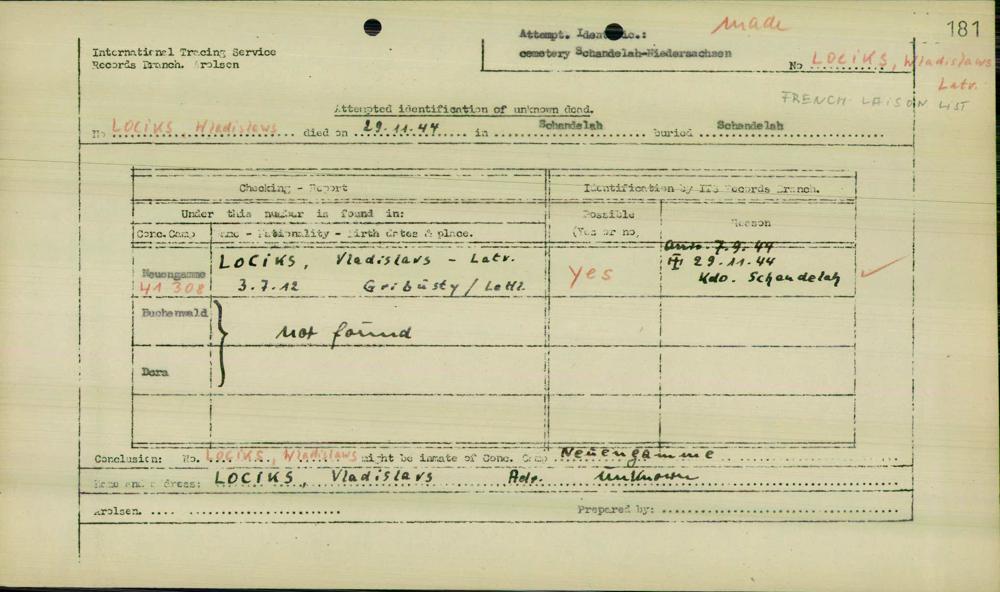 made
181
International Tracing Service
Records Branch. Arolsen
Attempt. Iden
cemetery Schandelah-Niedersachsen
No LOCIKS, Wladislaws
Latv.
FRENCH LAISON LIST
Attempted identification of unknown dead.
No LOCIKS, Wladislaws died on 29.11.44 in Schandelah buried Schandelah
Checking - Report
Identification by ITS Records Branch.
Under this number is found in:
Possible
(Yes or no)
Reason
Conc.Camp
ame - Nationality - Birth dates & place.
Neuengamme
41 308
LOCIKS, Vladislavs - Latv.
3.7.12 Gribusty / Lettl.
yes
7.9.44
29.11.44
Kdo. Schandelah
Buchenwald
Dora
not found
Conclusion: No. LOCIKS, Wladislaws might be inmate of Conc. Camp Neuengamme
Name and address: LOCIKS, Vladislavs Adr. unknown
Arolsen.
Prepared by: